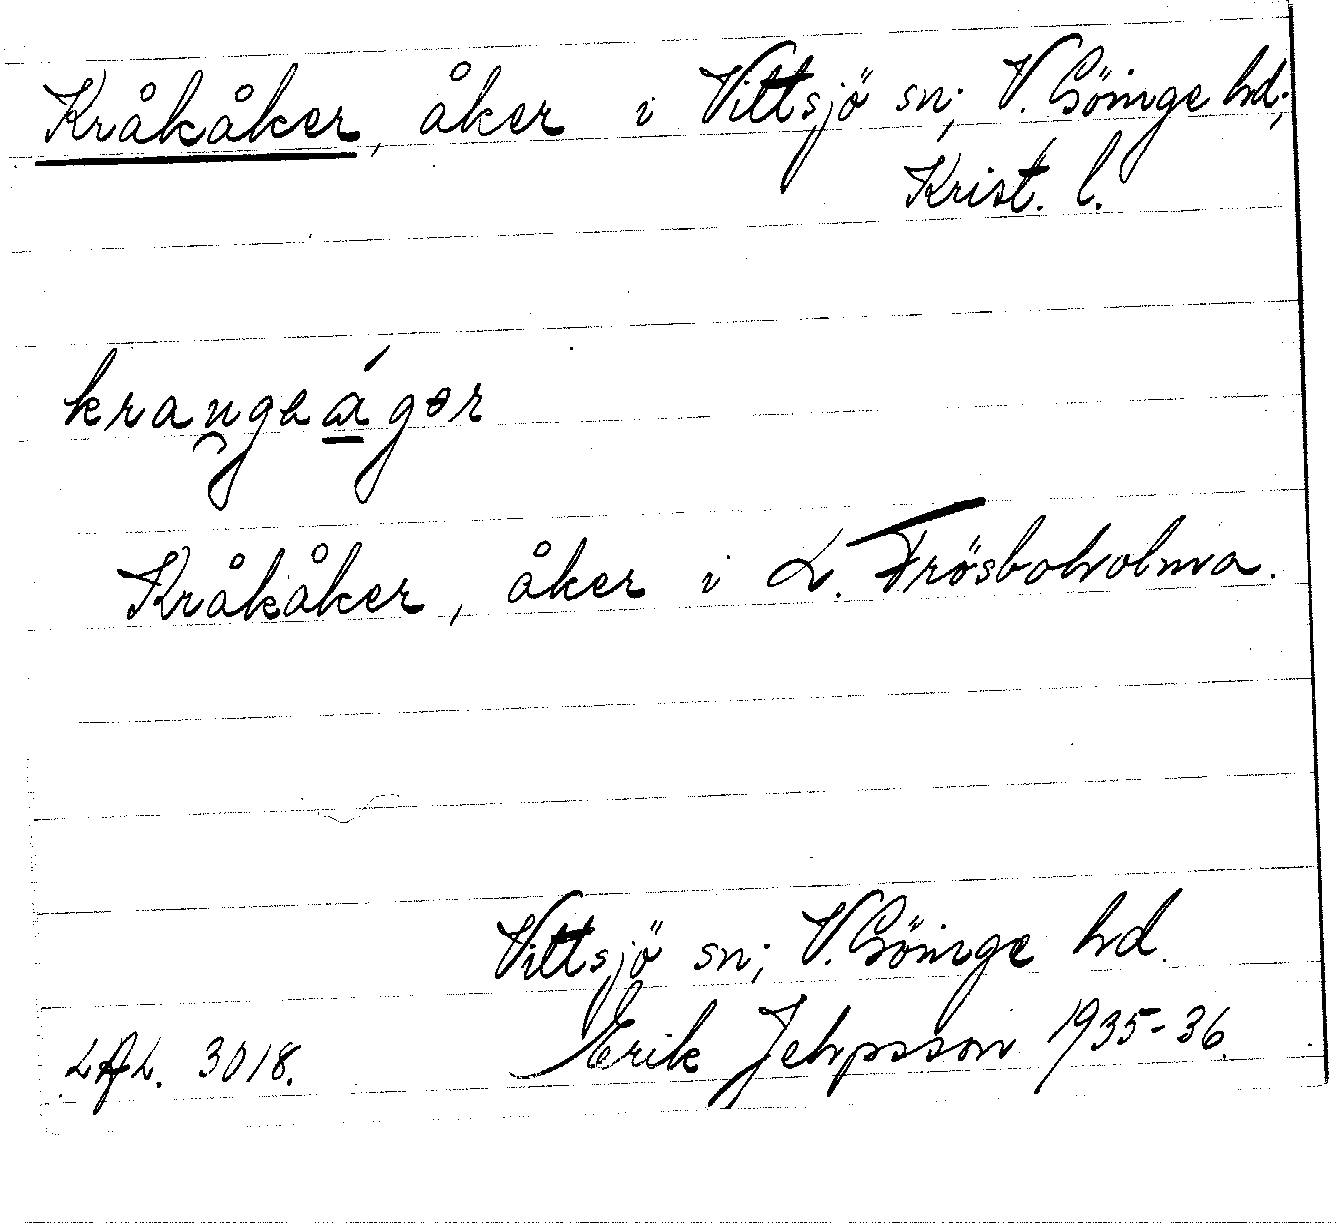 Kråkåker, åker i Vittsjö sn; V. Göinge hd;
Krist. l.
Kråkåker, åker i L. Frösboholma.
Vittsjö sn; V. Göinge hd.
L.A.L. 3018. Erik Jeppsson 1935-36.